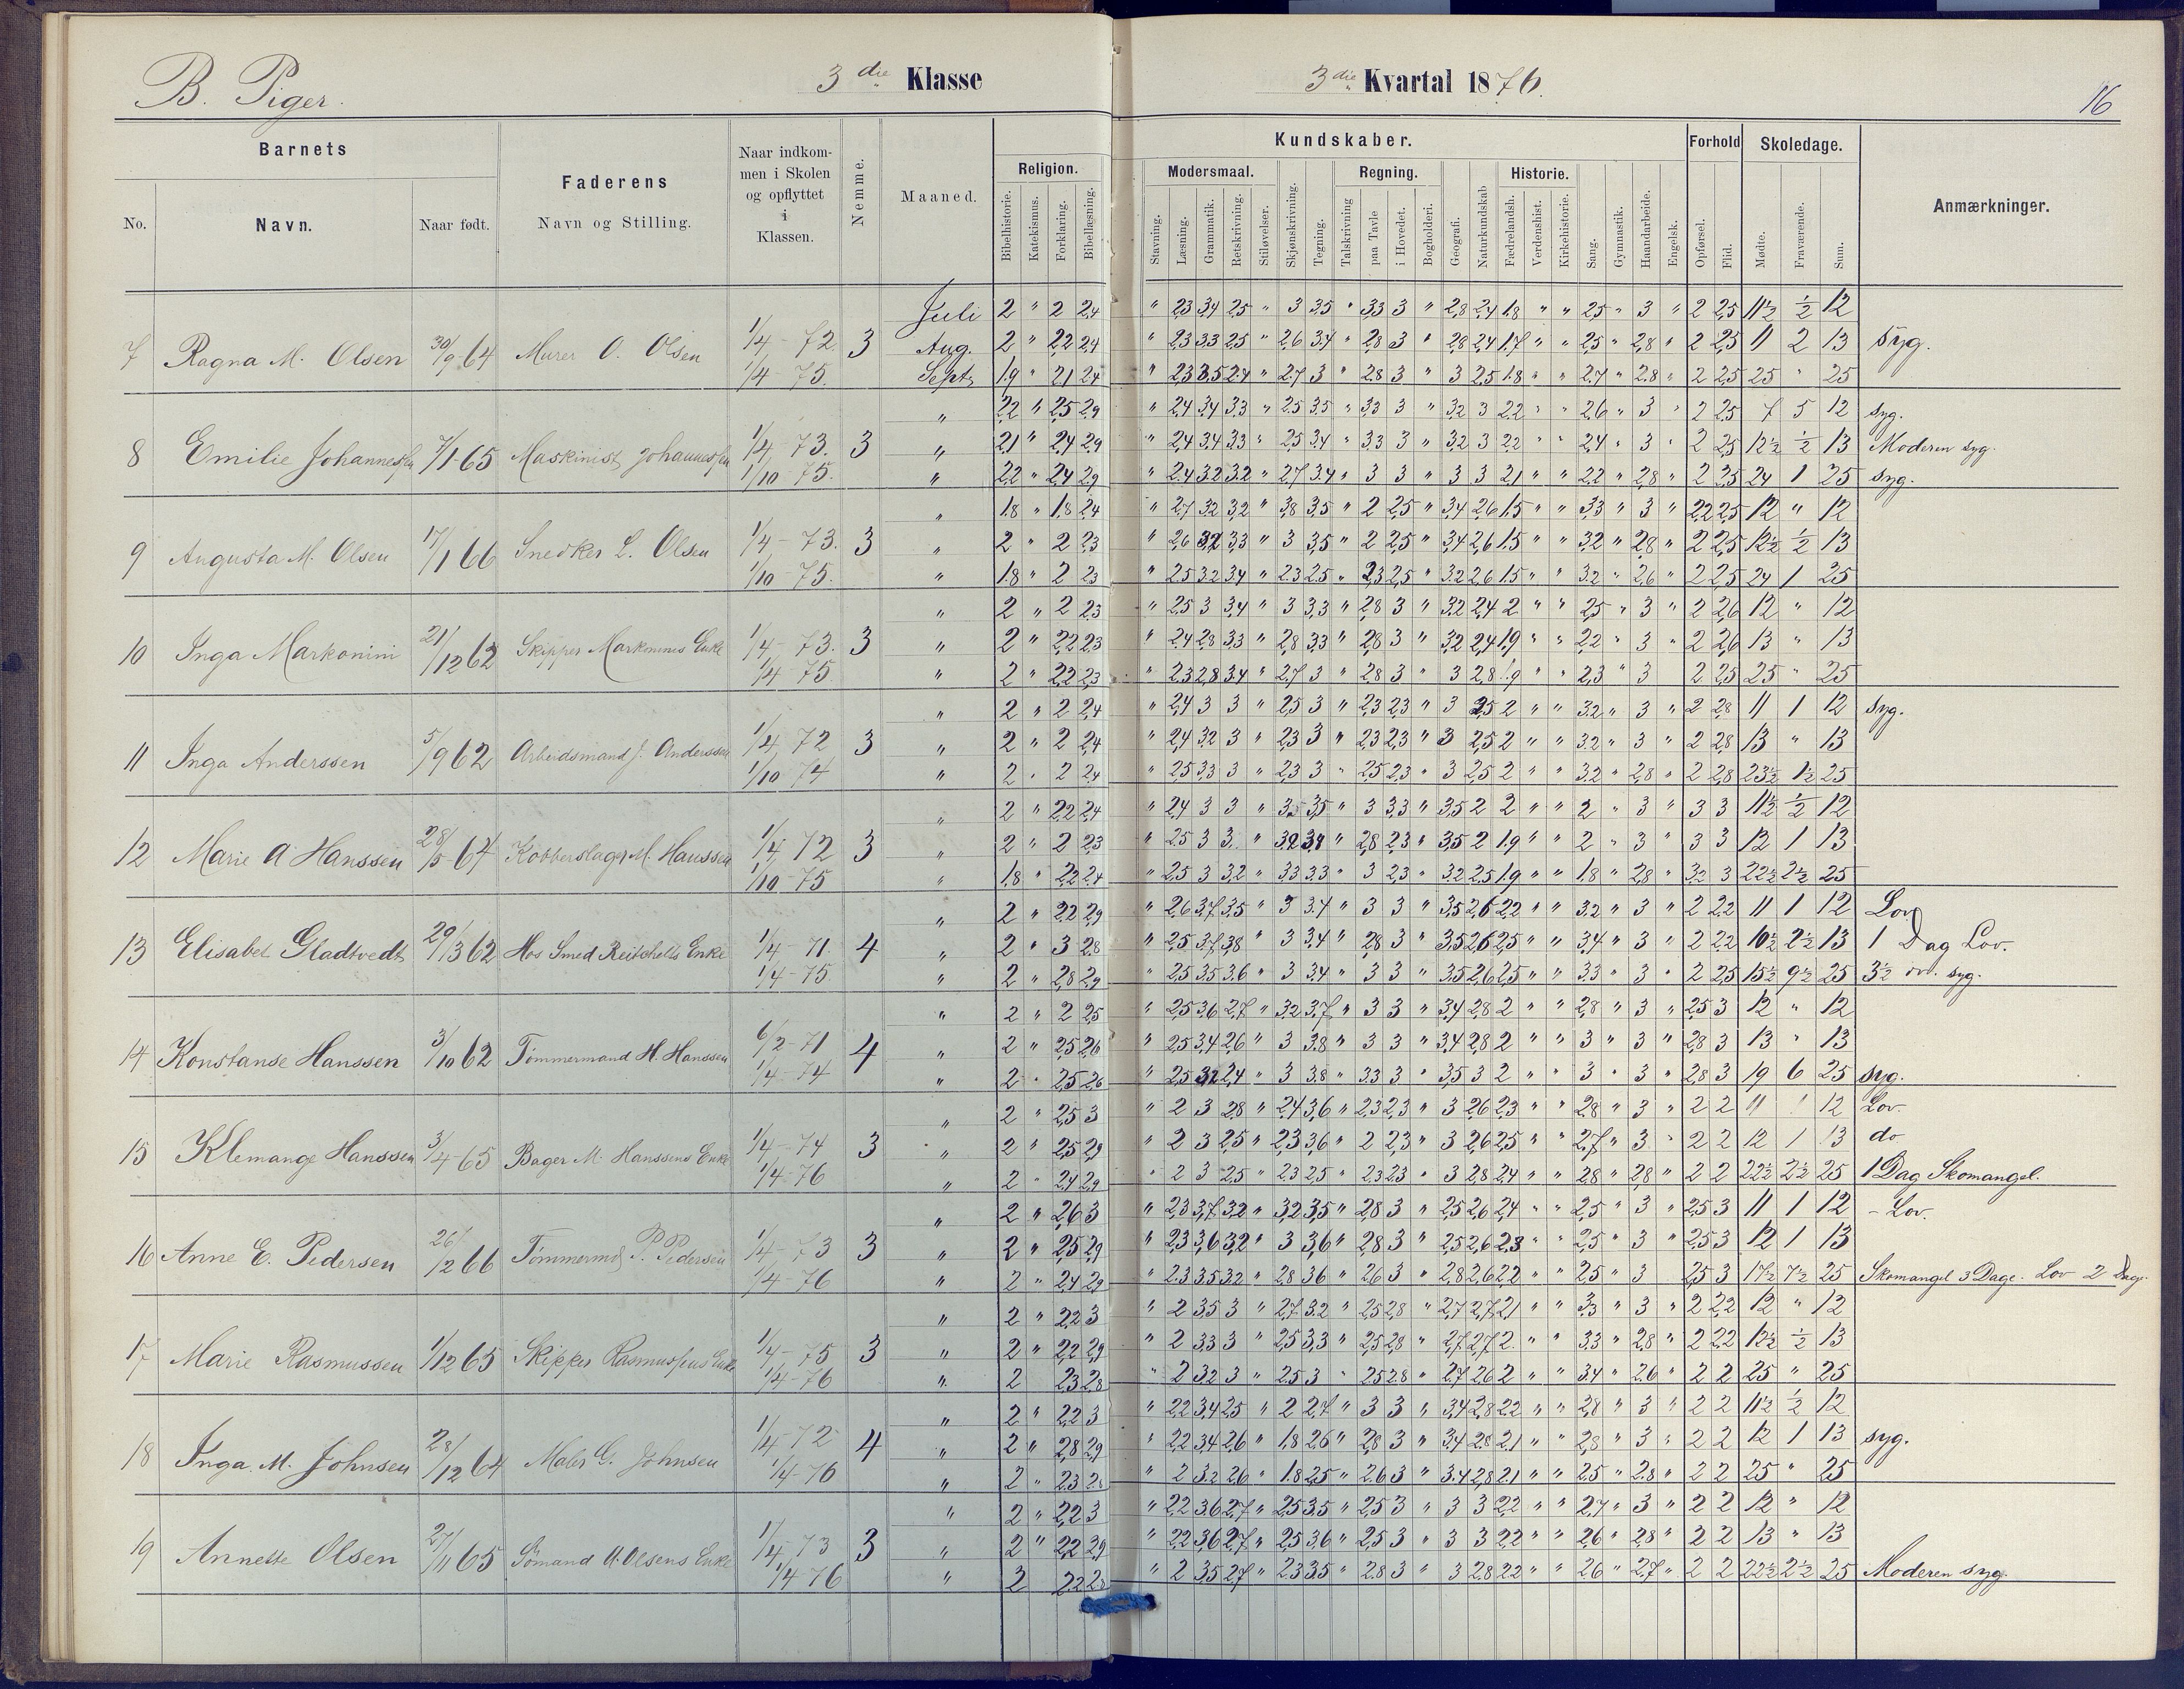 B. Piger.
3die Klasse
3die Kvartal 1876.
16
Barnets
Faderens
Naar indkom-
men i Skolen
og opflyttet
i
Klassen.
Nemme.
Maaned.
Religion.
Kundskaber.
Forhold
Skoledage.
Anmærkninger.
No.
Navn.
Naar født.
Navn og Stilling.
Bibelhistorie.
Katekismus.
Forklaring.
Bibellæsning.
Modersmaal.
Regning.
Historie.
Stavning.
Læsning.
Grammatik.
Retskrivning.
Stiløvelser.
Skjønskrivning.
Tegning.
Talskrivning
paa Tavle
i Hovedet.
Bogholderi.
Geografi.
Naturkundskab
Fædrelandsh.
Verdenshist.
Kirkehistorie.
Sang.
Gymnastik.
Haandarbeide.
Engelsk.
Opførsel.
Flid.
Mødte.
Fraværende.
Sum.
Juli 2 " 2 2,4 " 2,3 3,4 2,5 " 3 3,5 " 3,3 3 " 2,8 2,4 1,8 " " 2,5 " 3 " 2 2,5 11½ ½ 12
7 Ragna M. Olsen 30/9 64 Murer O. Olsen 1/4 - 72 1/4 - 75. 3 Aug. 2 " 2,2 2,4 " 2,3 3,3 2,5 " 2,6 3,4 " 2,8 3 " 2,8 2,4 1,7 " " 2,5 " 2,8 " 2 2,5 11 2 13 syg.
Septr 1,9 " 2,1 2,4 " 2,3 3,5 2,4 " 2,7 3 " 2,8 3 " 3 2,5 1,8 " " 2,7 " 2,8 " 2 2,5 25 " 25
" 2,2 " 2,5 2,9 " 2,4 3,4 3,3 " 2,5 3,5 " 3,3 3 " 3,2 3 2,2 " " 2,6 " 3 " 2 2,5 7 5 12 syg.
8 Emilie Johannessen 7/1 65 Maskinist Johannessen 1/4 - 73. 1/10 - 75. 3 " 2,1 " 2,4 2,9 " 2,4 3,4 3,3 " 2,5 3,4 " 3,3 3 " 3,2 3 2,2 " " 2,4 " 3 " 2 2,5 12½ ½ 13 Moderen syg.
" 2,2 " 2,4 2,9 " 2,4 3,2 3,2 " 2,7 3,4 " 3 3 " 3 3 2,1 " " 2,2 " 2,8 " 2 2,5 24 1 25 syg.
" 1,8 " 1,8 2,4 " 2,7 3,2 3,2 " 3,8 3,5 " 2 2,5 " 3,4 2,6 1,5 " " 3,3 " 3 " 2,2 2,5 12 " 12
9 Augusta M. Olsen 17/1 66 Snedker L. Olsen 1/4 - 73. 1/10 - 75. 3 " 2 " 2 2,3 " 2,6 3,2 3,3 " 3 3,5 " 2 2,5 " 3,4 2,6 1,5 " " 3,2 " 2,8 " 2 2,5 12½ ½ 13
" 1,8 " 2 2,3 " 2,5 3,2 3,4 " 2,3 2,5 " 2,3 2,5 " 3,2 2,6 1,5 " " 3,2 " 2,6 " 2 2,5 24 1 25
" 2 " 2 2,3 " 2,5 3 3,4 " 3 3,3 " 2,8 3 " 3,2 2,4 2 " " 2,5 " 3 " 2 2,6 12 " 12
10 Inga Markonini 21/12 62 Skipper Markoninis Enke 1/4 - 73. 1/4 - 75. 3 " 2 " 2,2 2,3 " 2,4 2,8 3,3 " 2,8 3,3 " 2,8 3 " 3,2 2,4 1,9 " " 2,2 " 3 " 2 2,6 13 " 13
" 2 " 2,2 2,3 " 2,3 2,8 3,4 " 2,7 3 " 2,8 3 " 3 2,8 1,9 " " 2,3 " 3 2 2,5 25 " 25
" 2 " 2 2,4 " 2,4 3 3 " 2,5 3 " 2,3 2,3 " 3 2,5 2 " " 3,2 " 3 " 2 2,8 11 1 12 syg.
11 Inga Anderssen 5/9 62 Arbeidsmand J. Anderssen 1/4 72 1/10 - 74 3 " 2 " 2 2,4 " 2,4 3,2 3 " 2,3 3 " 2,3 2,3 " 3 2,5 2 " " 3,2 " 3 " 2 2,8 13 " 13
" 2 " 2 2,4 " 2,5 3,3 3 " 2,3 3 " 2,5 2,3 " 3 2,5 2 " " 3,2 " 2,8 " 2 2,8 23½ 1½ 25
" 2 " 2,2 2,4 " 2,4 3 3 " 3,5 3,5 " 3 3,3 " 3,5 2 2 " " 2 " 3 " 3 3 11½ ½ 12
12 Marie A Hanssen 28/5 64 Kobberslager M. Hanssen 1/4 72 1/10 - 75 3 " 2 " 2 2,3 " 2,5 3 3 " 3,2 3,4 " 2,8 2,3 " 3,5 2 1,9 " " 2 " 3 " 3 3 12 1 13
" 1,8 " 2,2 2,4 " 2,5 3 3,2 " 3,3 3,3 " 3 2,3 " 3,2 2,5 1,9 " " 1,8 " 2,8 " 3,2 3 22½ 2½ 25
" 2 " 2,2 2,9 " 2,6 3,7 3,5 " 3 3,4 " 3 3 " 3,5 2,6 2,2 " " 3,2 " 3 " 2 2,2 11 1 12 Lov
13 Elisabet Gladtvedt 29/3 62 Hos Smed Reitcholts Enke 1/4 - 71 1/4 - 75. 4 " 2 " 3 2,8 " 2,5 3,7 3,8 " 3 3,4 " 2,8 3 " 3,5 2,6 2,5 " " 3,4 " 3 " 2 2,2 10½ 2½ 13 1 Dag Lov.
" 2 " 2,8 2,9 " 2,5 3,5 3,6 " 3 3,4 " 3 3 " 3,5 2,6 2,5 " " 3,3 " 3 " 2 2,5 15½ 9½ 25 3½ syg.
" 2 " 2 2,5 " 2,5 3,6 2,7 " 3,2 3,7 " 3 3 " 3,4 2,8 2 " " 2,8 " 3 " 2,5 3 12 " 12
14 Konstanse Hanssen 3/10 62 Tømmermand H. Hanssen 6/2 - 71 1/4 - 74 4 " 2 " 2,5 2,6 " 2,5 3,4 2,6 " 3 3,8 " 3 3 " 3,4 2,8 2 " " 3 " 3 " 2,8 3 13 " 13
" 2 " 2,5 2,6 " 2,5 3,2 2,4 " 3 3,8 " 3,3 3 " 3,5 3 2 " " 3 " 3 " 2,8 3 19 6 25 syg.
" 2 " 2,5 3 " 2 3 2,8 " 2,4 3,6 " 2,3 2,3 " 3 2,6 2,3 " " 2,8 " 3 " 2 2 11 1 12 Lov.
15 Klemange Hanssen 3/4 65 Bager M. Hanssens Enke 1/4 - 74 1/4 - 76 3 " 2 " 2,5 2,9 " 2 3 2,5 " 2,3 3,6 " 2 2,3 " 3 2,6 2,5 " " 2,7 " 3 " 2 2 12 1 13 do
" 2 " 2,4 2,9 " 2 3 2,5 " 2,3 2,5 " 2,3 2,3 " 3 2,8 2,4 " " 2,8 " 2,8 " 2 2 22½ 2½ 25 1 Dag Skomangel.
" 2 " 2,6 3 " 2,3 3,7 3,2 " 3,2 3,5 " 2,8 3 " 2,5 2,6 2,4 " " 2,5 " 3 " 2,5 3 11 1 12 - Lov.
16 Anne E. Pedersen 26/2 66 Tømmermd P. Pedersen 1/4 - 73 1/4 - 76 3 " 2 " 2,5 2,9 " 2,3 3,6 3,2 " 3 3,6 " 2,8 3 " 2,5 2,6 2,3 " " 2,5 " 3 " 2,5 3 12 1 13
" 2 " 2,4 2,9 " 2,3 3,5 3,2 " 2,8 3,6 " 2,6 3 " 2,8 2,6 2,2 " " 2,5 " 3 2,5 3 17½ 7½ 25 Skomangel 3 Dage. Lov 2 Dage.
" 2 " 2,2 3 " 2 3,5 3 " 2,7 3,2 " 2,5 2,8 " 2,7 2,7 2,1 " " 3,3 " 3 " 2 2,2 12 " 12
17 Marie Rasmussen 1/12 65 Skipper Rasmussens Enke 1/4 - 75 1/4 - 76 3 " 2 " 2,2 2,9 " 2 3,3 3 " 2,5 3,3 " 2,5 2,8 " 2,7 2,7 2 " " 3,3 " 2,8 " 2 2,2 12½ ½ 13
" 2 2,3 2,8 " 2 3,2 3 " 2,5 3 " 2,5 2,8 " 2,7 2,6 2 " " 3,4 " 2,6 " 2 2 25 " 25
" 2 " 2,2 3 " 2,2 3,4 2,5 " 2 2,7 " 3 3 " 3,4 2,8 2,2 " " 2,8 " 3 " 2 2 11½ ½ 12
18 Inga. M. Johnsen 28/12 64 Maler G. Johnsen 1/4 - 72 1/4 - 76 4 " 2 " 2,8 2,9 " 2,2 3,4 2,6 " 1,8 2,6 " 2,8 3 " 3,4 2,8 2,1 " " 2,8 " 3 " 2 2 12 1 13 syg.
" 2 " 2,3 2,8 " 2 3,2 2,6 " 1,8 2,5 " 2,6 3 " 3,4 2,8 2,1 " " 2,5 " 2,8 " 2 2 25 " 25
" 2 " 2,2 3 " 2,2 3,6 2,7 " 2,5 3,5 " 2,5 3 " 3 3 2,2 " " 2,7 " 3 " 2 2 12 " 12
19 Annette Olsen 27/11 65 Sømand A. Olsens Enke 1/4 73 1/4 76 3 " 2 " 2,2 2,9 " 2,2 3,6 2,7 " 2,5 3,6 " 2,5 3 " 3 3 2,2 " " 2,6 " 2,8 " 2 2 13 " 13
" 2 2,2 2,8 " 2 3,5 2,7 " 2,3 3,5 " 2,8 3 " 3 2,8 2,2 " " 2,6 " 2,7 " 2 2 22½ 2½ 25 Moderen syg.